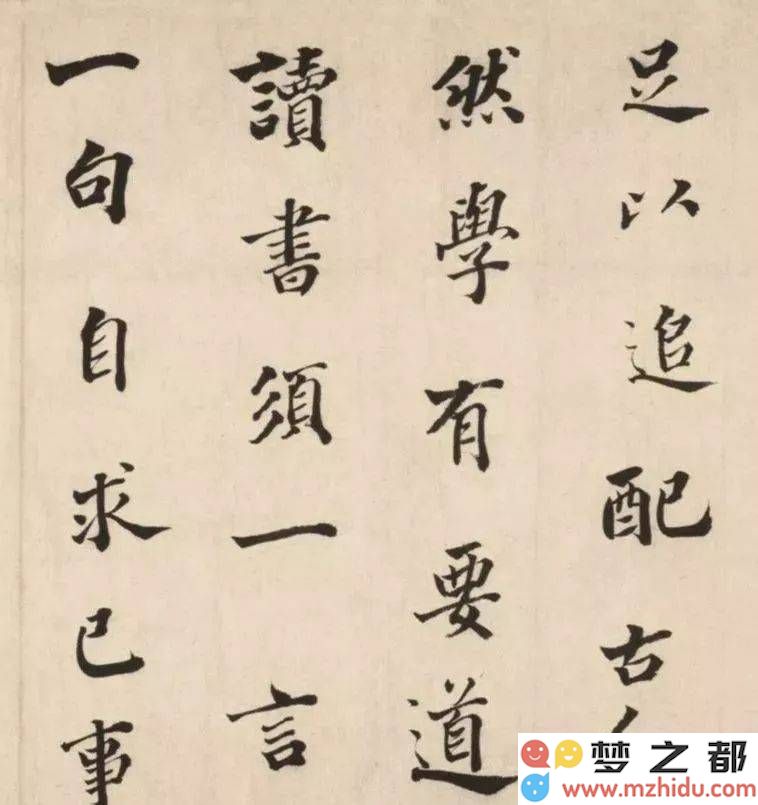 足以追配古
然學有要道
讀書須一言
一句自求己事
梦之都
www.mzhidu.com